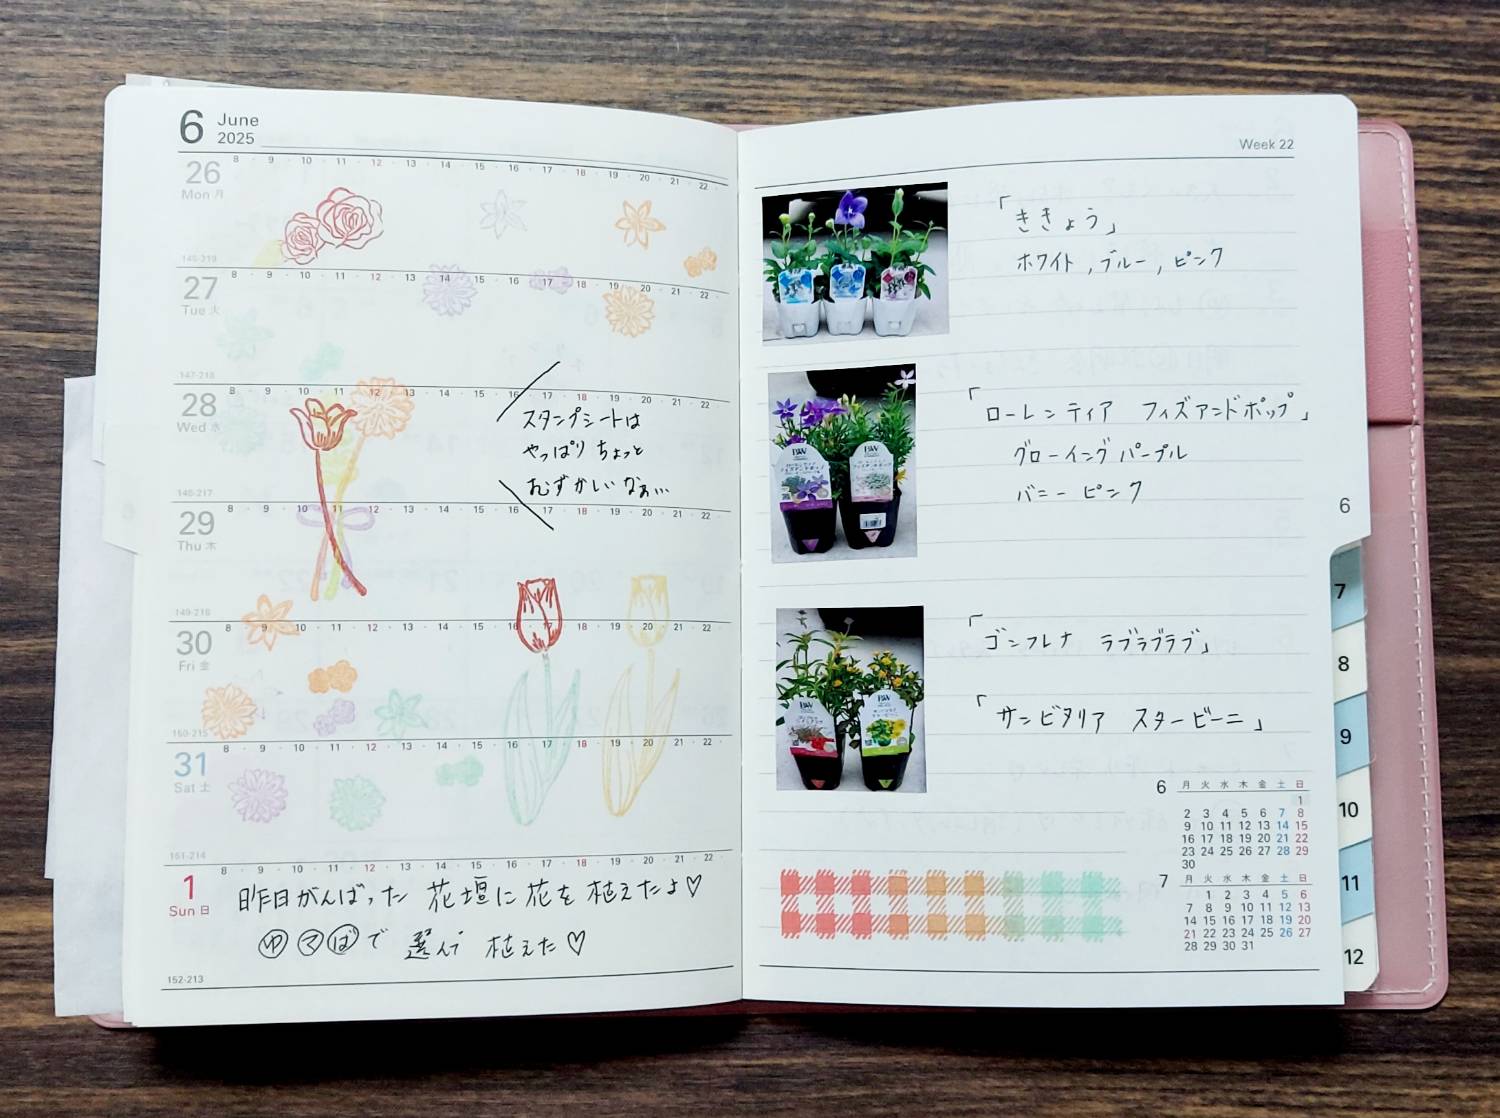 6 June
2025
26
Mon 月
8 · 9 · 10 · 11 · 12 · 13 · 14 · 15 · 16 · 17 · 18 · 19 · 20 · 21 · 22 ·
146-219
27
Tue 火
8 · 9 · 10 · 11 · 12 · 13 · 14 · 15 · 16 · 17 · 18 · 19 · 20 · 21 · 22 ·
147-218
28
Wed 水
8 · 9 · 10 · 11 · 12 · 13 · 14 · 15 · 16 · 17 · 18 · 19 · 20 · 21 · 22 ·
スタンプシートは
やっぱり ちょっと
むずかしいなぁ…
148-217
29
Thu 木
8 · 9 · 10 · 11 · 12 · 13 · 14 · 15 · 16 · 17 · 18 · 19 · 20 · 21 · 22 ·
149-216
30
Fri 金
8 · 9 · 10 · 11 · 12 · 13 · 14 · 15 · 16 · 17 · 18 · 19 · 20 · 21 · 22 ·
150-215
31
Sat 土
8 · 9 · 10 · 11 · 12 · 13 · 14 · 15 · 16 · 17 · 18 · 19 · 20 · 21 · 22 ·
151-214
1
Sun 日
8 · 9 · 10 · 11 · 12 · 13 · 14 · 15 · 16 · 17 · 18 · 19 · 20 · 21 · 22 ·
昨日がんばった 花壇に花を 植えたよ♡
ゆ ま ば で 選んで 植えた♡
152-213
Week 22
「ききょう」
ホワイト, ブルー, ピンク
「ローレンティア フィズアンドポップ」
グローイングパープル
バニーピンク
B&W
フィズアンドポップ
B&W
「ゴンフレナ ラブラブラブ」
「サンビタリア スタービーニ」
B&W
B&W
6 月 火 水 木 金 土 日
1
2 3 4 5 6 7 8
9 10 11 12 13 14 15
16 17 18 19 20 21 22
23 24 25 26 27 28 29
30
7 月 火 水 木 金 土 日
1 2 3 4 5 6
7 8 9 10 11 12 13
14 15 16 17 18 19 20
21 22 23 24 25 26 27
28 29 30 31
6
7
8
9
10
11
12